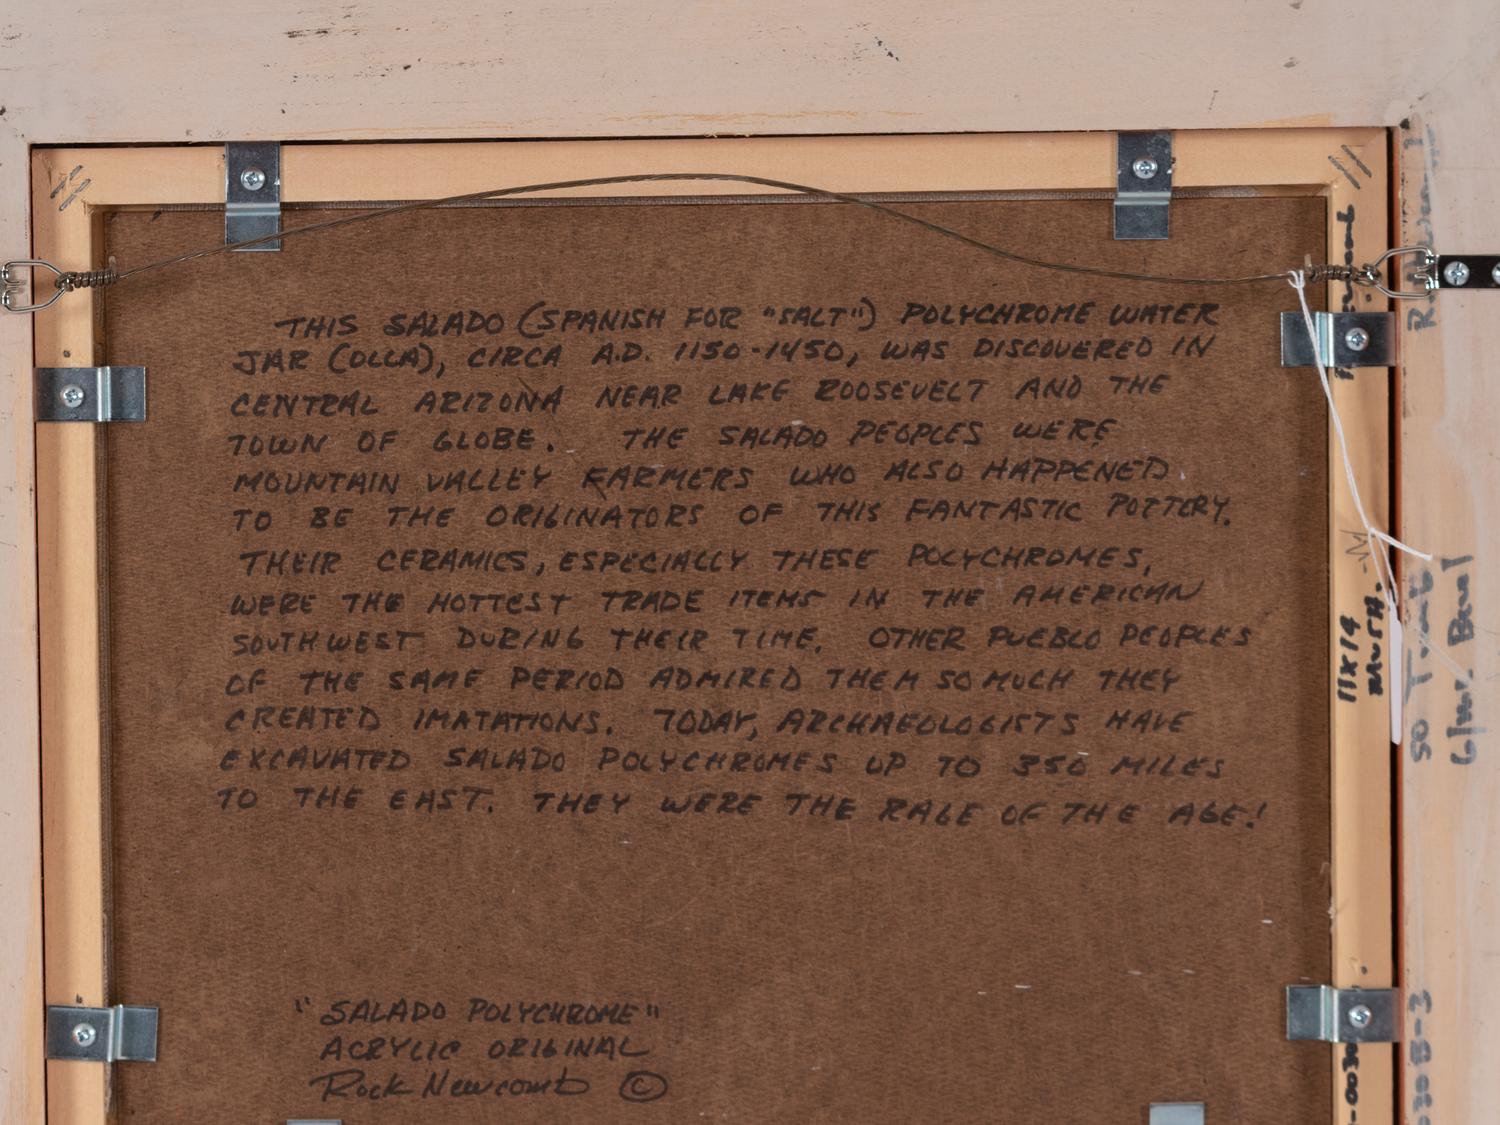 THIS SALADO (SPANISH FOR "SALT") POLYCHROME WATER
JAR (OLLA), CIRCA A.D. 1150-1450, WAS DISCOVERED IN
CENTRAL ARIZONA NEAR LAKE ROOSEVELT AND THE
TOWN OF GLOBE. THE SALADO PEOPLES WERE
MOUNTAIN VALLEY FARMERS WHO ALSO HAPPENED
TO BE THE ORIGINATORS OF THIS FANTASTIC POTTERY.
THEIR CERAMICS, ESPECIALLY THESE POLYCHROMES,
WERE THE HOTTEST TRADE ITEMS IN THE AMERICAN
SOUTHWEST DURING THEIR TIME. OTHER PUEBLO PEOPLES
OF THE SAME PERIOD ADMIRED THEM SO MUCH THEY
CREATED IMATATIONS. TODAY, ARCHAEOLOGISTS HAVE
EXCAVATED SALADO POLYCHROMES UP TO 350 MILES
TO THE EAST. THEY WERE THE RAGE OF THE AGE!
"SALADO POLYCHROME"
ACRYLIC ORIGINAL
Rock Newcomb ©
11x14
50
030B-3